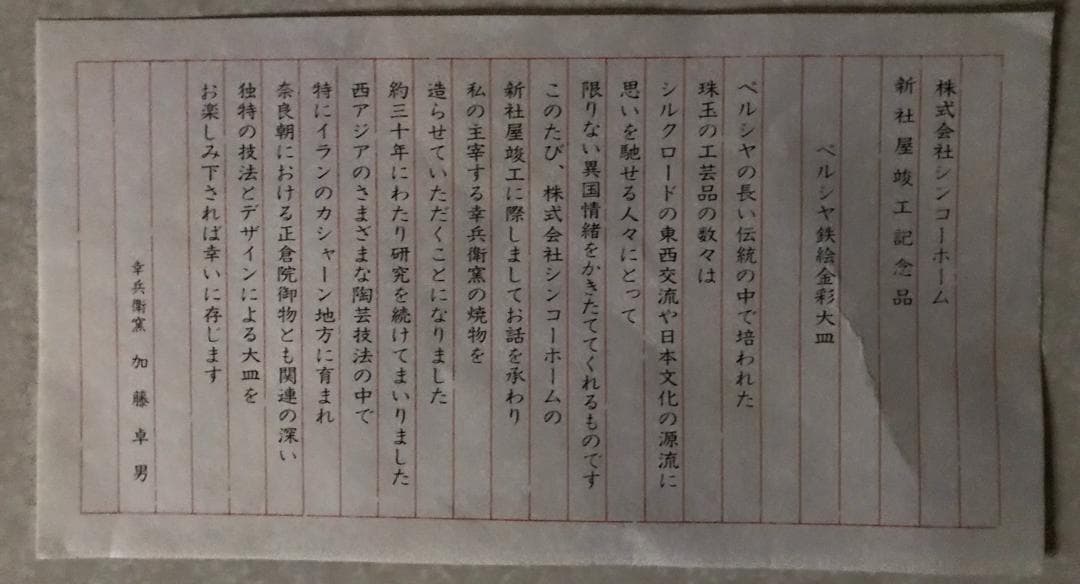 株式会社シンコーホーム
新社屋竣工記念品
ペルシヤ鉄絵金彩大皿
ペルシヤの長い伝統の中で培われた
珠玉の工芸品の数々は
シルクロードの東西交流や日本文化の源流に
思いを馳せる人々にとって
限りない異国情緒をかきたててくれるものです
このたび、株式会社シンコーホームの
新社屋竣工に際しましてお話を承わり
私の主宰する幸兵衛窯の焼物を
造らせていただくことになりました
約三十年にわたり研究を続けてまいりました
西アジアのさまざまな陶芸技法の中で
特にイランのカシャーン地方に育まれ
奈良朝における正倉院御物とも関連の深い
独特の技法とデザインによる大皿を
お楽しみ下されば幸いに存じます
幸兵衛窯 加藤卓男